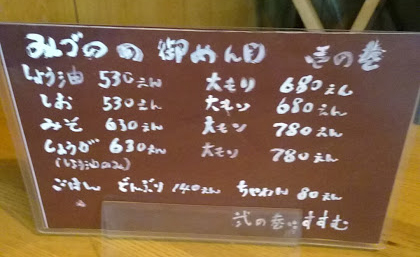 みづのの御めん 壱の巻
しょう油 530えん 大もり 680えん
しお 530えん 大もり 680えん
みそ 630えん 大もり 780えん
しょうが 630えん 大もり 780えん
(しょう油のみ)
ごはん どんぶり 140えん ちゃわん 80えん
弐の巻へすすむ